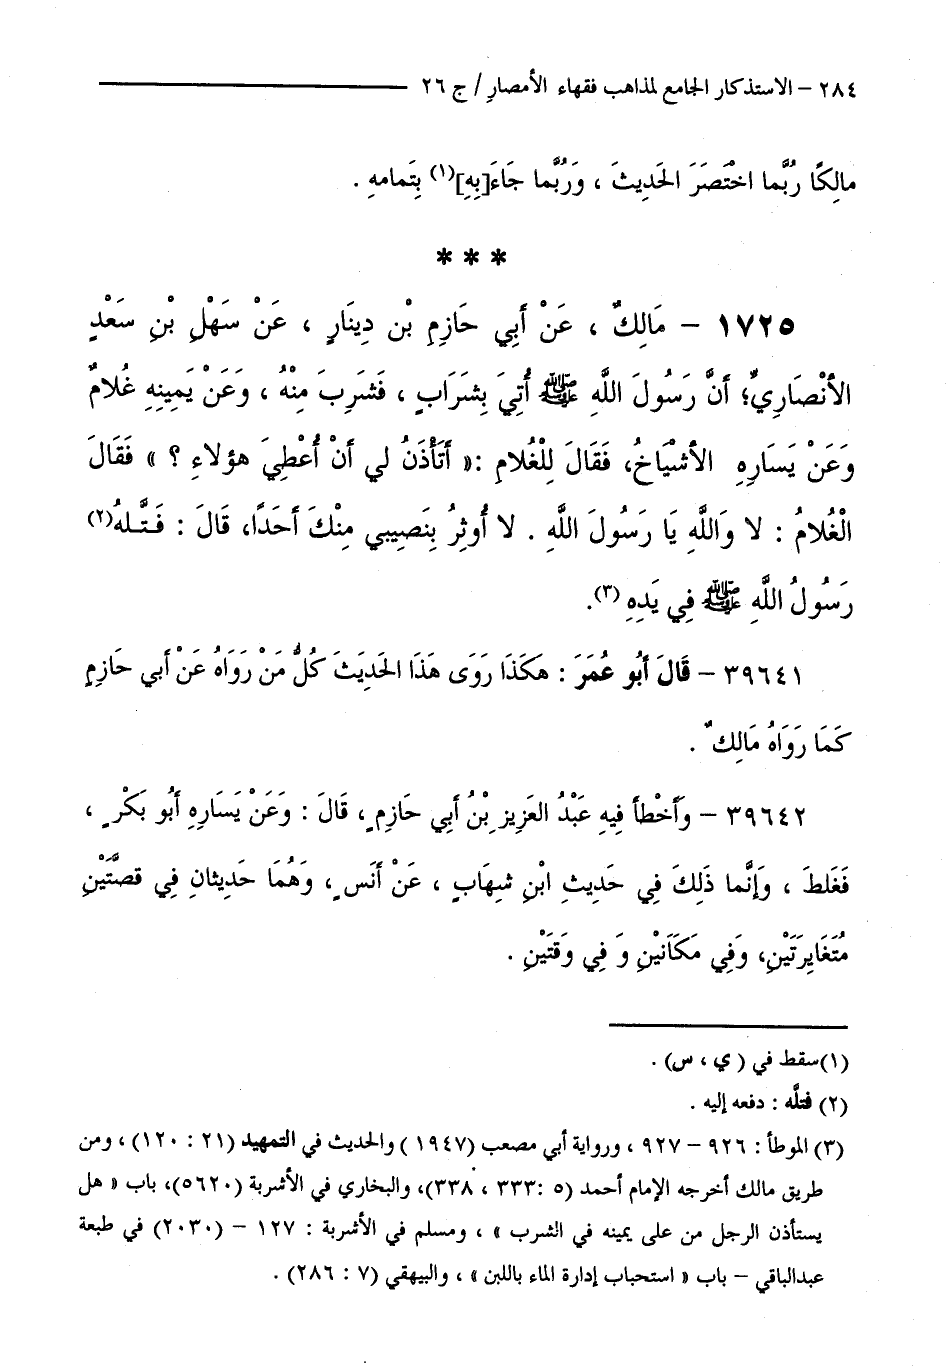 ٢٨٤ – الاستذكار الجامع لمذاهب فقهاء الأمصار / ج ٢٦
مالِكًا رُبَّما اخْتَصَرَ الحَدِيثَ ، وَرُبَّما جَاءَ[بِهِ](١) بِتَمامهِ .
* * *
١٧٢٥ – مَالِكٌ ، عَنْ أَبِي حَازِمِ بْن دِينَارٍ ، عَنْ سَهْلِ بْنِ سَعْدٍ
الأنْصَارِيِّ؛ أنَّ رَسُولَ اللَّهِ ﷺ أُتِيَ بِشَرَابٍ ، فَشَرِبَ مِنْهُ ، وَعَنْ يَمِينِهِ غُلامٌ
وَعَنْ يَسَارِهِ الأشْيَاخُ، فَقَالَ لِلْغُلامِ :« أتَأْذَنُ لي أنْ أُعْطِيَ هؤلاءِ ؟ » فَقَالَ
الْغُلامُ : لا وَاللَّهِ يَا رَسُولَ اللَّهِ . لا أُوثِرُ بِنَصِيبي مِنْكَ أحَدًا، قَالَ : فَتَلَّهُ(٢)
رَسُولُ اللَّهِ ﷺ فِي يَدِهِ (٣).
٣٩٦٤١ – قَالَ أَبُو عُمَرَ : هكَذَا رَوَى هَذَا الحَدِيثَ كُلُّ مَنْ رَوَاهُ عَنْ أبي حَازِمٍ
كَمَا رَوَاهُ مَالِكٌ .
٣٩٦٤٢ – وَأَخْطأ فِيهِ عَبْدُ العَزِيزِ بْنُ أبِي حَازِمٍ، قَالَ : وَعَنْ يَسَارِهِ أَبُو بَكْرٍ ،
فَغَلطَ ، وَإِنَّما ذَلِكَ فِي حَدِيثِ ابْنِ شِهَابٍ ، عَنْ أنَسٍ ، وَهُمَا حَدِيثانِ فِي قصَّتَيْنِ
مُتَغَايِرَتَيْنِ، وَفِي مَكَانَيْنِ وَ فِي وَقْتَيْنِ .
(١)سقط في ( ي ، س) .
(٢) فتلَّه : دفعه إليه .
(٣) الموطأ : ٩٢٦ – ٩٢٧ ، ورواية أبي مصعب (١٩٤٧ ) والحديث في التمهيد (٢١ : ١٢٠) ، ومن
طريق مالك أخرجه الإمام أحمد (٥ :٣٣٣ ، ٣٣٨)، والبخاري في الأشربة (٥٦٢٠)، باب « هل
يستأذن الرجل من على يمينه في الشرب » ، ومسلم في الأشربة : ١٢٧ – (٢٠٣٠) في طبعة
عبدالباقي – باب « استحباب إدارة الماء باللبن » ، والبيهقي (٧ : ٢٨٦) .